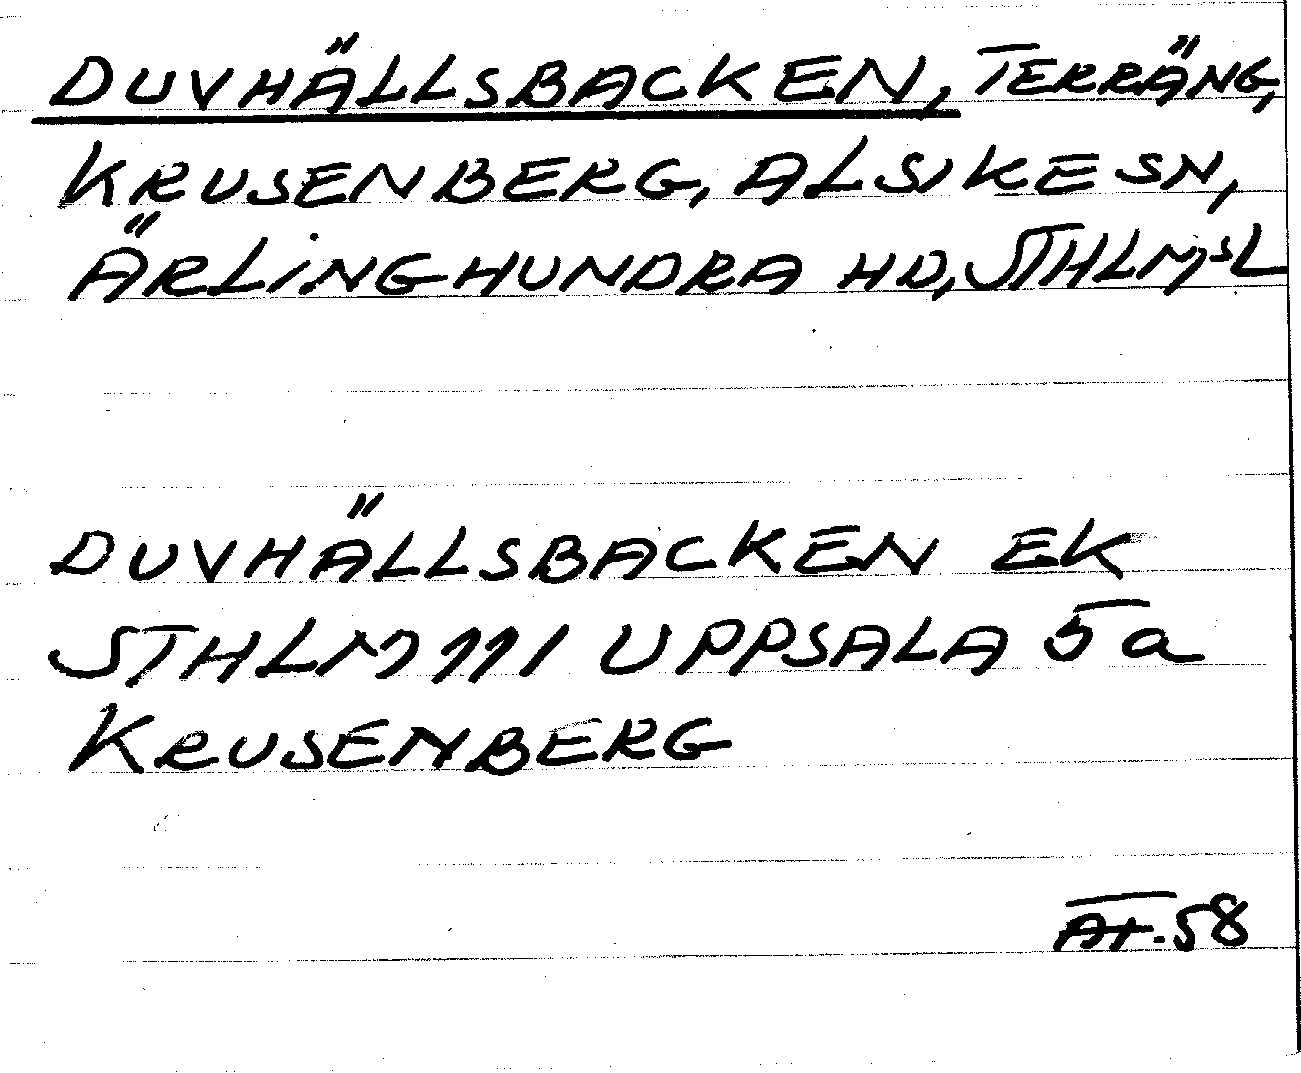 DUVHÄLLSBACKEN, TERRÄNG,
KRUSENBERG, ALSIKE SN,
ÄRLINGHUNDRA HD, STHLMSL
DUVHÄLLSBACKEN EK
STHLM 111 UPPSALA 5a
KRUSENBERG
58